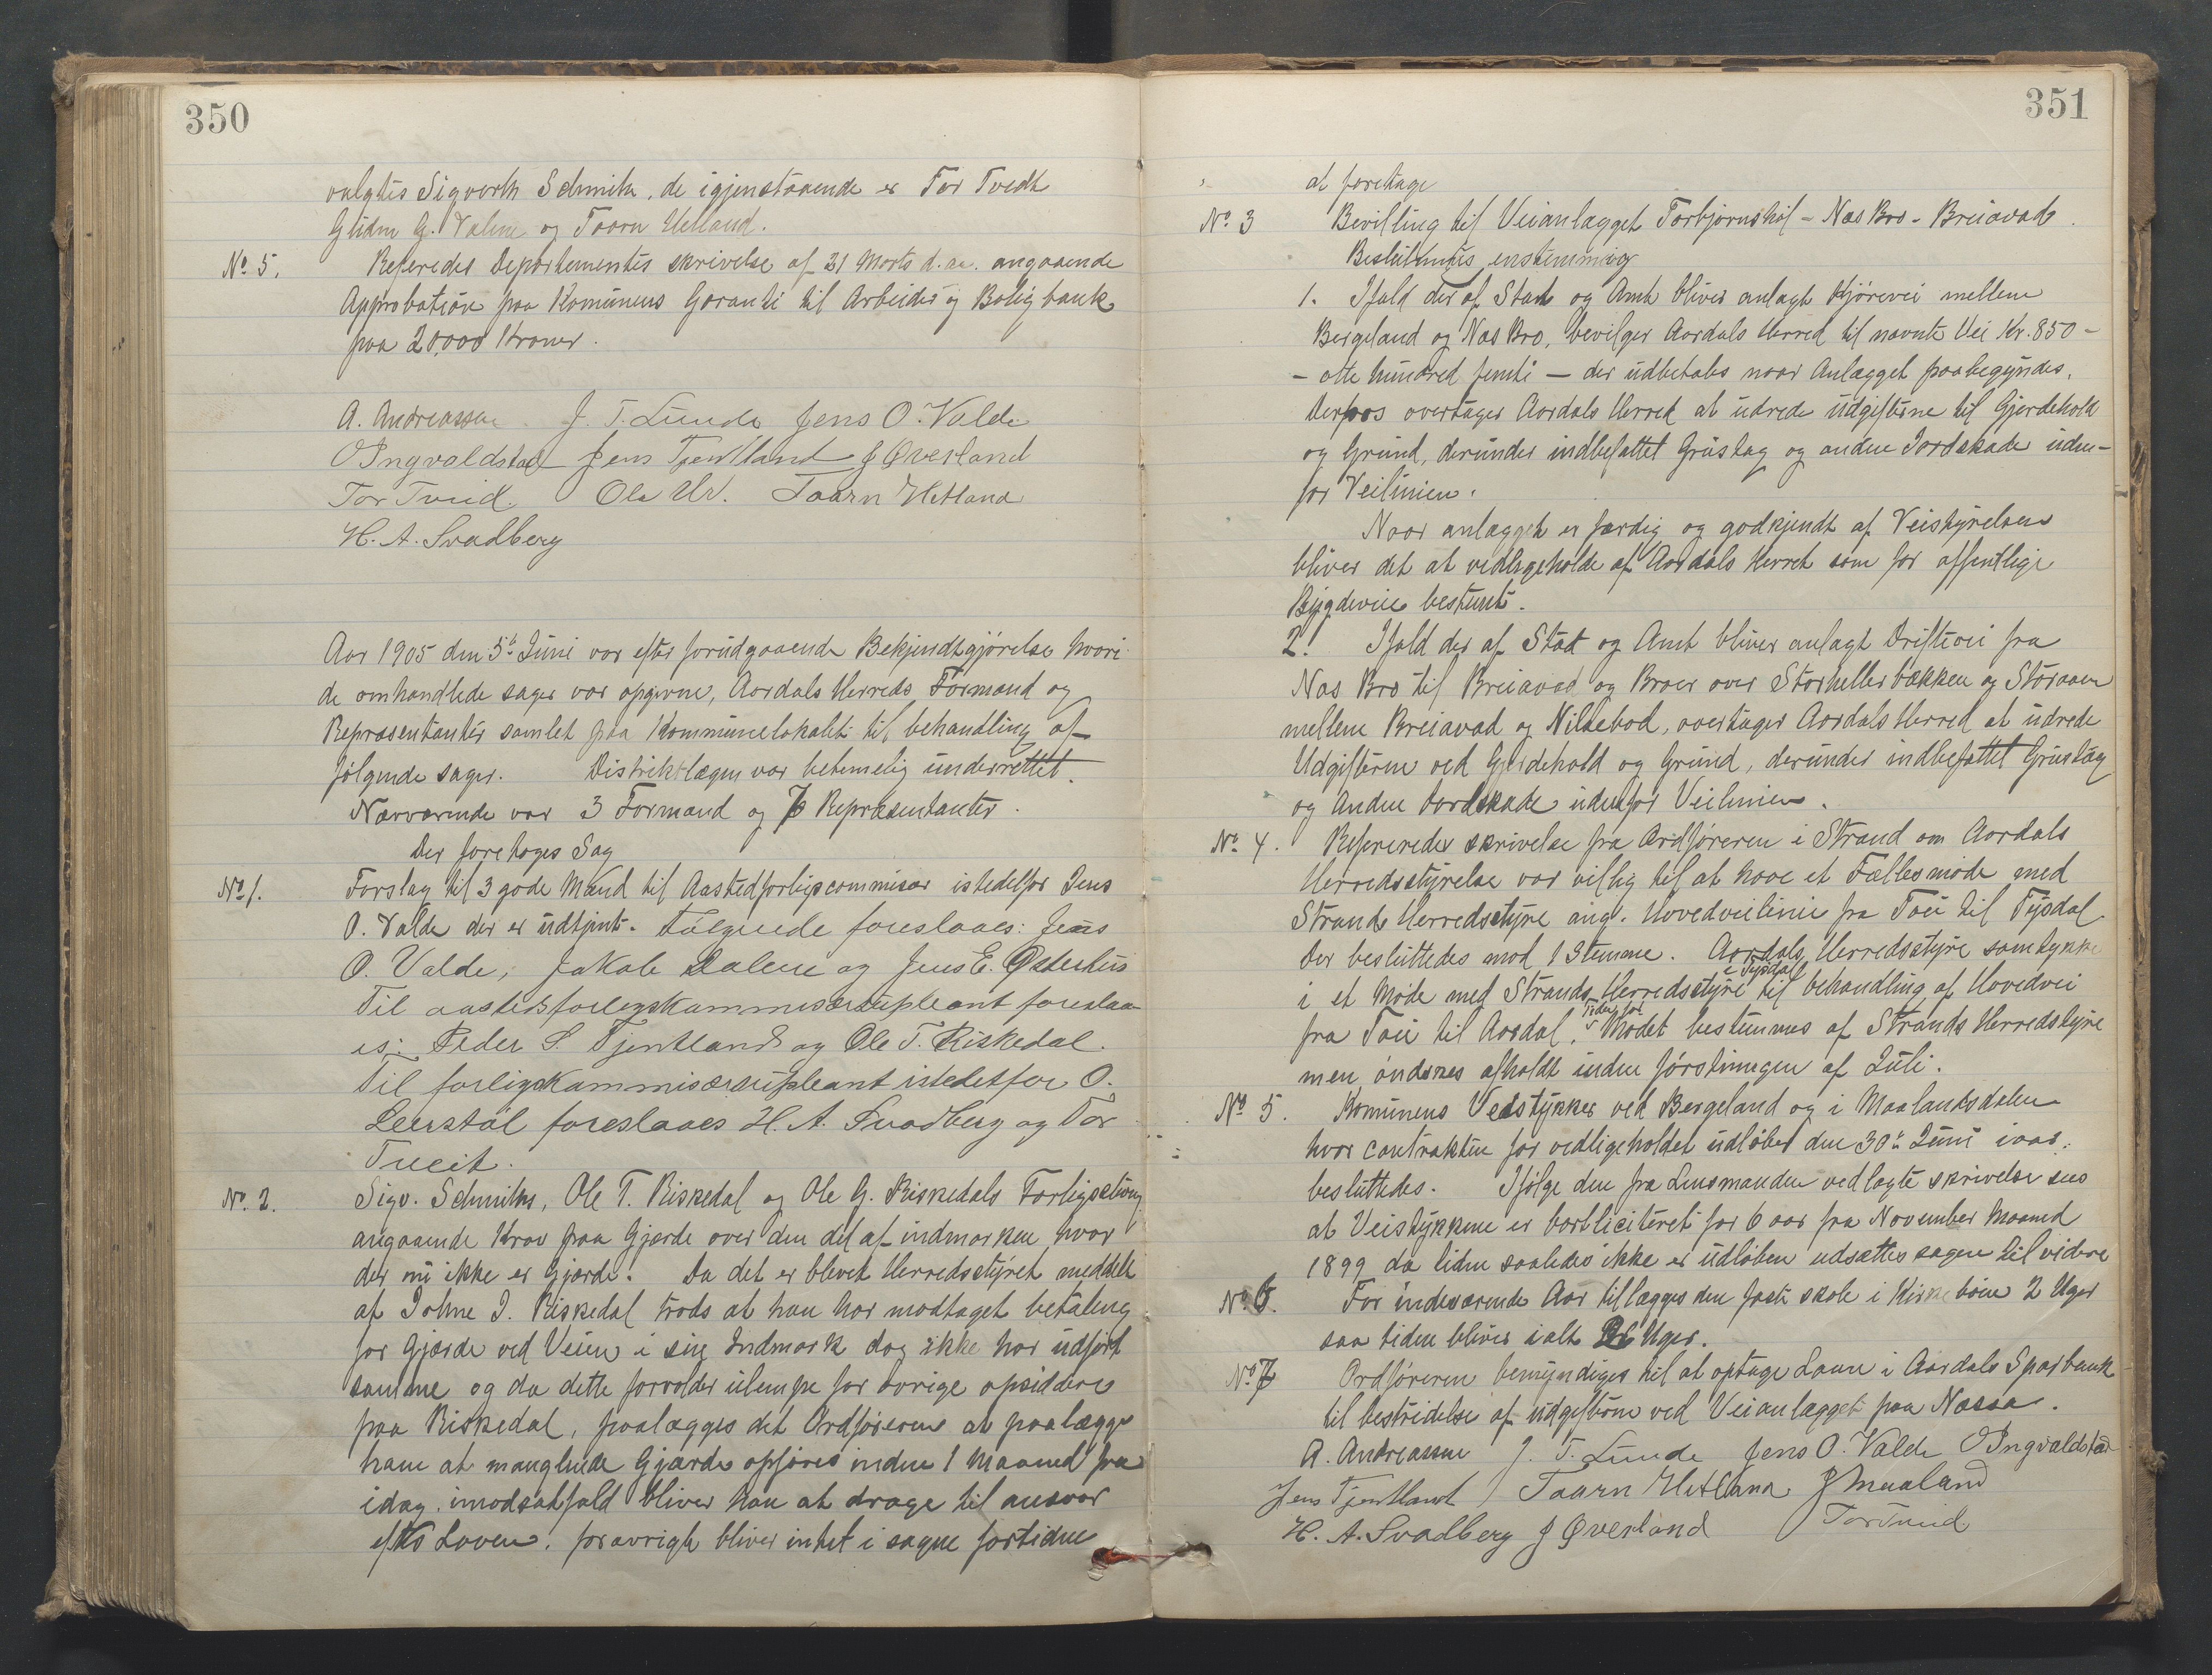 350
valgtes Sigvorth Schmith, de igjenstaaende er Tor Tvedt
G. Valme og Taarn Hetland.
No. 5. Referedes Departementes skrivelse af 31 Marts d. aa. angaaende
Approbation paa Komunens Garanti til Arbeider og Boligbank
paa 20,000 Kroner.
A. Andreassen. J. T. Lunde Jens O. Valde
O Ingvaldstad Jens Tjentland J Øverland
Tor Tveid. Ole Ur. Taarn Hetland
H. A. Svadberg
Aar 1905 den 5te Juni var efter forudgaaende Bekjendtgjørelse hvori
de omhandlede sager var opgivne, Aardals Herreds Formænd og
Repræsentanter samlet paa Kommunelokalet til behandling af
følgende sager. Distriktslægen var betimelig underrettet.
Nærværende var 3 Formænd og 7 Repræsentanter.
Der foretoges Sag
No. 1. Forslag til 3 gode Mænd til Aastedforligscommisær istedetfor Jens
O. Valde der er udtjent. Følgende foreslaaes: Jens
O. Valde, Jakob Dalene og Jens E. Østerhus
Til aastedsforligskammisærsupleant foreslaa-
es: Peder S. Tjentland og Ole T. Riskedal.
Til forligskammisærsupleant istedetfor O.
Leerstøl foreslaaes H. A. Svadberg og Tor
Tveit.
No. 2. Sigv. Schmiths, Ole T. Riskedal og Ole G. Riskedals
angaaende Krav paa Gjærde over den del af indmarken hvor
der nu ikke er Gjærde. Da det er blevet Herredsstyret meddelt
af Johne J. Riskedal trods at han har modtaget betaling
for Gjærde ved Veien i sin Indmark dog ikke har udført
samme og da dette forvolder ulempe for øvrige opsiddere
paa Riskedal, paalægges det Ordføreren at paalægge
ham at manglende Gjærde opføres inden 1 Maaned fra
idag. imodsatfald bliver han at drage til ansvar
efter Loven. forøvrigt bliver intet i sagen fortiden
351
at foretage
No. 3 Bevilling til Veianlægget Torbjørnshøl - Næs Bro - Breiavad.
Besluttedes enstemmig
1. Ifald der af Stat og Amt bliver anlagt Kjørevei mellem
Bergeland og Næs Bro, bevilger Aardals Herred til nævnte Vei Kr. 850 -
- otte hundred femti - der udbetales naar Anlægget paabegyndes.
Derpaa overtager Aardals Herred at udrede Udgifterne til Gjerdehold
og Grund, derunder indbefattet Grustag og anden Jordskade uden-
for Veilinien.
Naar anlægget er færdig og godkjendt af Veistyrelsen
bliver det at vedligeholde af Aardals Herred som for offentlige
Bygdeveie bestemt.
2. Ifald der af Stat og Amt bliver anlagt Driftevei fra
Næs Bro til Breiavad og Broer over Storhellerbækken og Storaaen
mellem Breiavad og Nilsebod, overtager Aardals Herred at udrede
Udgifterne ved Gjerdehold og Grund, derunder indbefattet Grustag
og Anden Jordskade udenfor Veilinien.
No. 4. Refereredes skrivelse fra Ordføreren i Strand om Aardals
Herredsstyrelse var villig til at have et Fællesmøde med
Strands Herredsstyre ang. Hovedveilinie fra Tau til Tysdal
Der besluttedes mod 1 Stemme. Aardals Herredsstyre samtykke
i et Møde med Strands Herredsstyre i Tysdal til behandling af Hovedvei
fra Tau til Aardal. Tiden for Mødet bestemmes af Strands Herredstyre
men ønskes afholdt inden førstningen af Juli.
No. 5. Komunens Veistykker ved Bergeland og i Maalandsdalen
hvor contrakten for vedligeholdet udløber den 30te Juni iaar:
besluttedes. Ifølge den fra Lensmanden vedlagte skrivelse sees
at Veistykkene er bortliciteret for 6 aar fra November Maaned
1899 da tiden saaledes ikke er udløben udsættes sagen til videre
No. 6. For indeværende Aar tillægges den faste skole i Kirkebøen 2 Uger
saa tiden bliver ialt Uger.
No. 7 Ordføreren bemyndiges til at optage Laan i Aardals Sparbank
til bestridelse af udgifterne ved Veianlægget paa Næssa.
A. Andreassen J. T. Lunde Jens O. Valde O Ingvaldstad
Jens Tjentland Taarn Hetland J Maaland
H. A. Svadberg J Øverland Tor Tveid